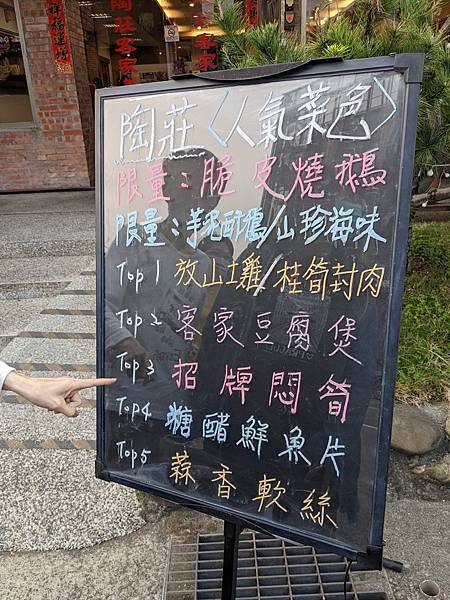 陶莊
客家
陶莊〈人氣菜色〉
限量：脆皮燒鵝
限量：芋泥酥鴨/山珍海味
Top 1 放山土雞/桂筍封肉
Top 2 客家豆腐煲
Top 3 招牌悶筍
Top 4 糖醋鮮魚片
Top 5 蒜香軟絲